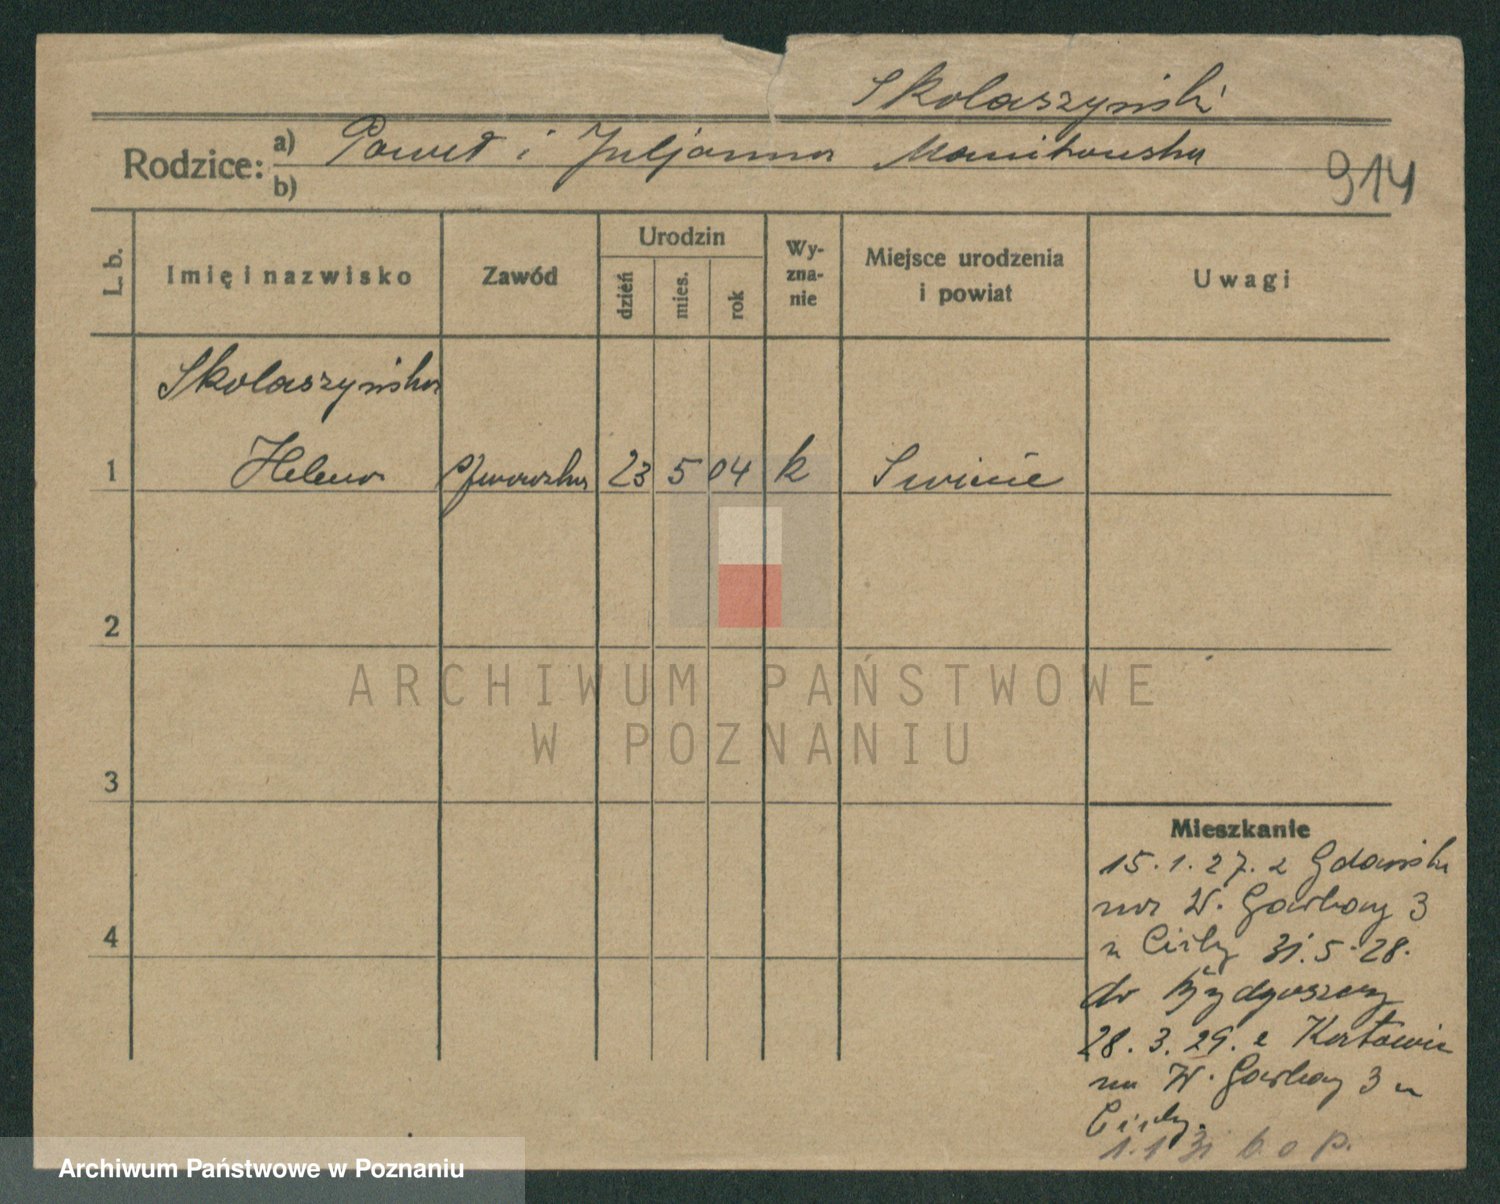 Skolaszyński
Rodzice: a) Paweł i Juljanna Manikowska
b)
914
L. b.
Imię i nazwisko
Zawód
Urodzin
dzień
mies.
rok
Wy-
zna-
nie
Miejsce urodzenia
i powiat
Uwagi
Skolaszyńska
1 Helena 23 5 04 k
2
3
4
Mieszkanie
15.1.27. z Gdańska
na W. Garbary 3
u Cichy 31.5.28.
do Bydgoszczy
28.3.29. z Katowic
na W. Garbary 3 u
Cichy.
1.1 31 b. o p.
ARCHIWUM PAŃSTWOWE
W POZNANIU
Archiwum Państwowe w Poznaniu